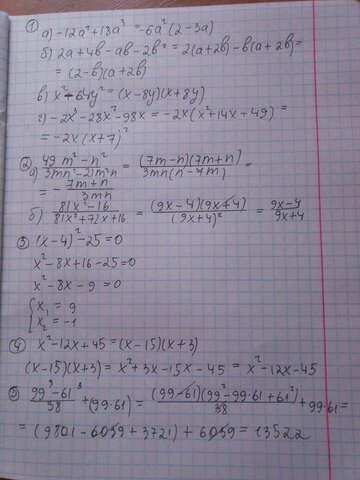 ① а) -12a²+18a³ = -6a²(2-3a)
б) 2a+4b-ab-2b² = 2(a+2b)-b(a+2b)=
= (2-b)(a+2b)
в) x²-64y² = (x-8y)(x+8y)
г) -2x³-28x²-98x = -2x(x²+14x+49) =
= -2x(x+7)²
② а) (49m²-n²)/(3mn²-21m²n) = (7m-n)(7m+n)/(3mn(n-7m)) =
= -(7m+n)/(3mn)
б) (81x²-16)/(81x²+72x+16) = (9x-4)(9x+4)/(9x+4)² = (9x-4)/(9x+4)
③ (x-4)²-25=0
x²-8x+16-25=0
x²-8x-9=0
{x₁ = 9
x₂ = -1
④ x²-12x+45=(x-15)(x+3)
(x-15)(x+3) = x²+3x-15x-45 = x²-12x-45
⑤ (99³-61³)/38 +(99·61) = (99-61)(99²-99·61+61²)/38 +99·61=
= (9801-6039+3721)+6039=13522